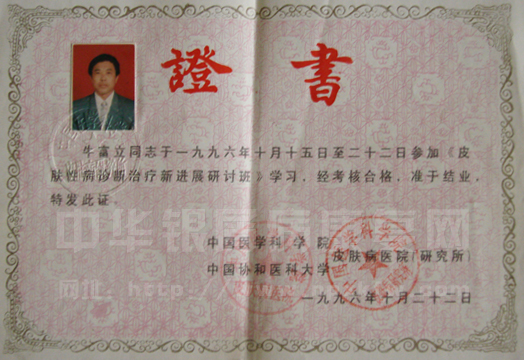 證 書
牛富立同志于一九九六年十月十五日至二十二日参加《皮
肤性病诊断治疗新进展研讨班》学习，经考核合格，准于结业，
特发此证。
中国医学科学院
皮肤病医院(研究所)
中国协和医科大学
一九九六年十月二十二日
中华银屑病康复网
网址：http://www